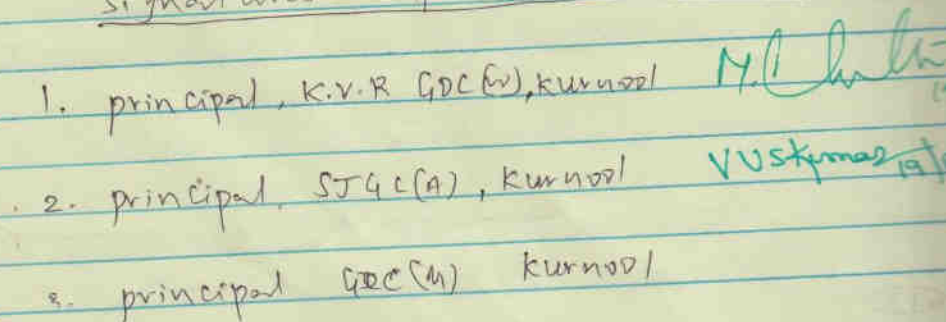 1. principal, K.V.R GDC(W), kurnool
2. principal, SJGC(A), kurnool VVSKumar 19
3. principal GDC(M) kurnool